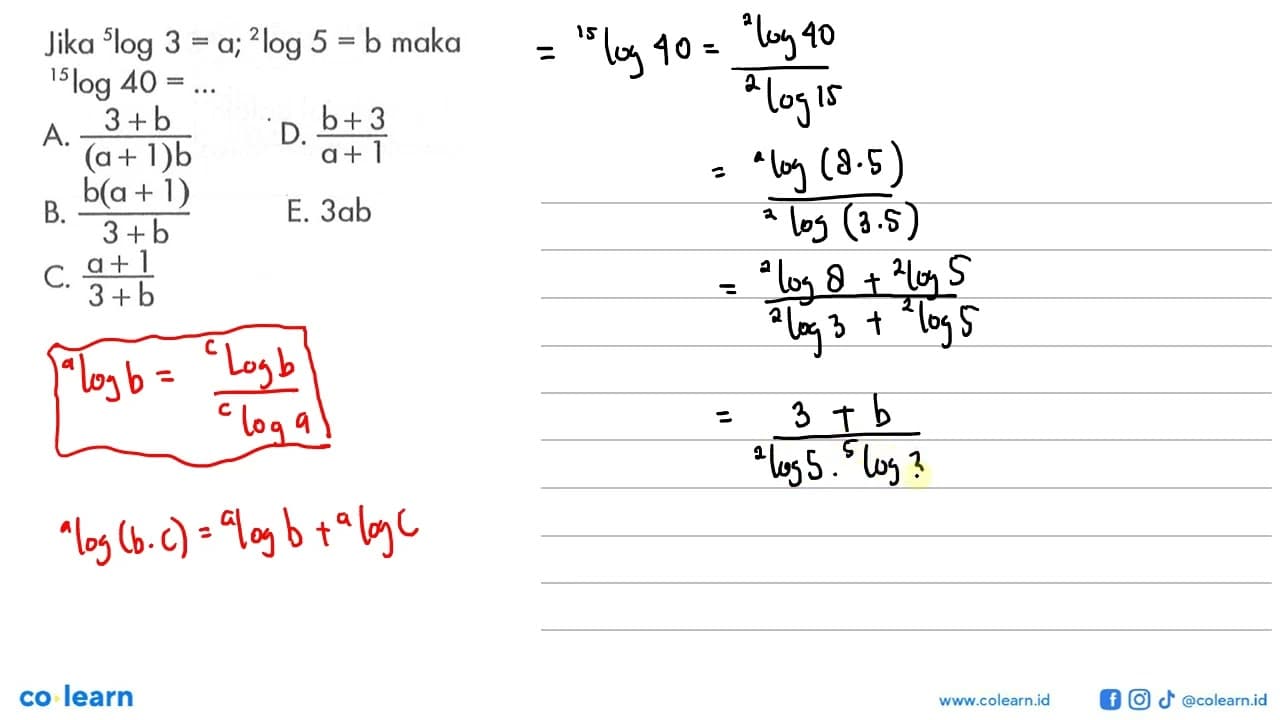 Jika ⁵log 3 = a; ²log 5 = b maka
¹⁵log 40 = ...
A. (3 + b)/((a + 1)b)
D. (b + 3)/(a + 1)
B. (b(a + 1))/(3 + b)
E. 3ab
C. (a + 1)/(3 + b)
ᵃlog b = (ᶜLog b)/(ᶜlog a)
ᵃlog (b . c) = ᵃlog b + ᵃlog c
= ¹⁵log 40 = (²log 40)/(²log 15)
= (²log (8 . 5))/(²log (3 . 5))
= (²log 8 + ²log 5)/(²log 3 + ²log 5)
= (3 + b)/(²log 5 . ⁵log 3)
co learn
www.colearn.id
@colearn.id